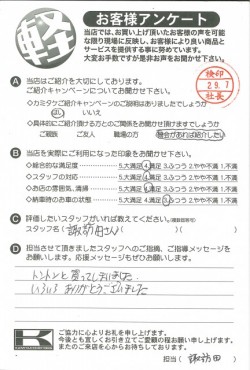 軽
お客様アンケート
当店では、お買い上げ頂いたお客様の声を可能
な限り現場に反映し、お客様により良い商品と
サービスを提供する事に努めています。
大変お手数ですが是非お声をお聞かせ下さい。
検印
29.7
社長
A 当店はご紹介を大切にしております。
ご紹介キャンペーンについてお聞かせ下さい。
◇カミタケご紹介キャンペーンのご説明はありましたでしょうか
はい いいえ
◇具体的にご紹介頂ける方とのご関係をお聞かせ頂けますでしょうか
ご親族 ご友人 職場の方 機会があれば紹介したい
B 当店を実際にご利用になった印象をお聞かせ下さい。
◇総合的な満足度 5.大満足 4.満足 3.ふつう 2.やや不満 1.不満
◇スタッフの対応 5.大満足 4.満足 3.ふつう 2.やや不満 1.不満
◇お店の雰囲気、清掃 5.大満足 4.満足 3.ふつう 2.やや不満 1.不満
◇納車時のお車の状態 5.大満足 4.満足 3.ふつう 2.やや不満 1.不満
C 評価したいスタッフがいれば教えてください。(複数回答可)
スタッフ名( 諏訪田さん )( )
D 担当させて頂きましたスタッフへのご指摘、ご指導メッセージを
お願いします。応援メッセージもぜひお願いします。
トントンと買ってしまいました。
いろいろありがとうございました
K
ご協力に心よりお礼を申し上げます。
今後とも宜しくお引き立てご愛顧の程お願い申し上げます。
またのご来店を心からお待ちしております。
担当( 諏訪田 )